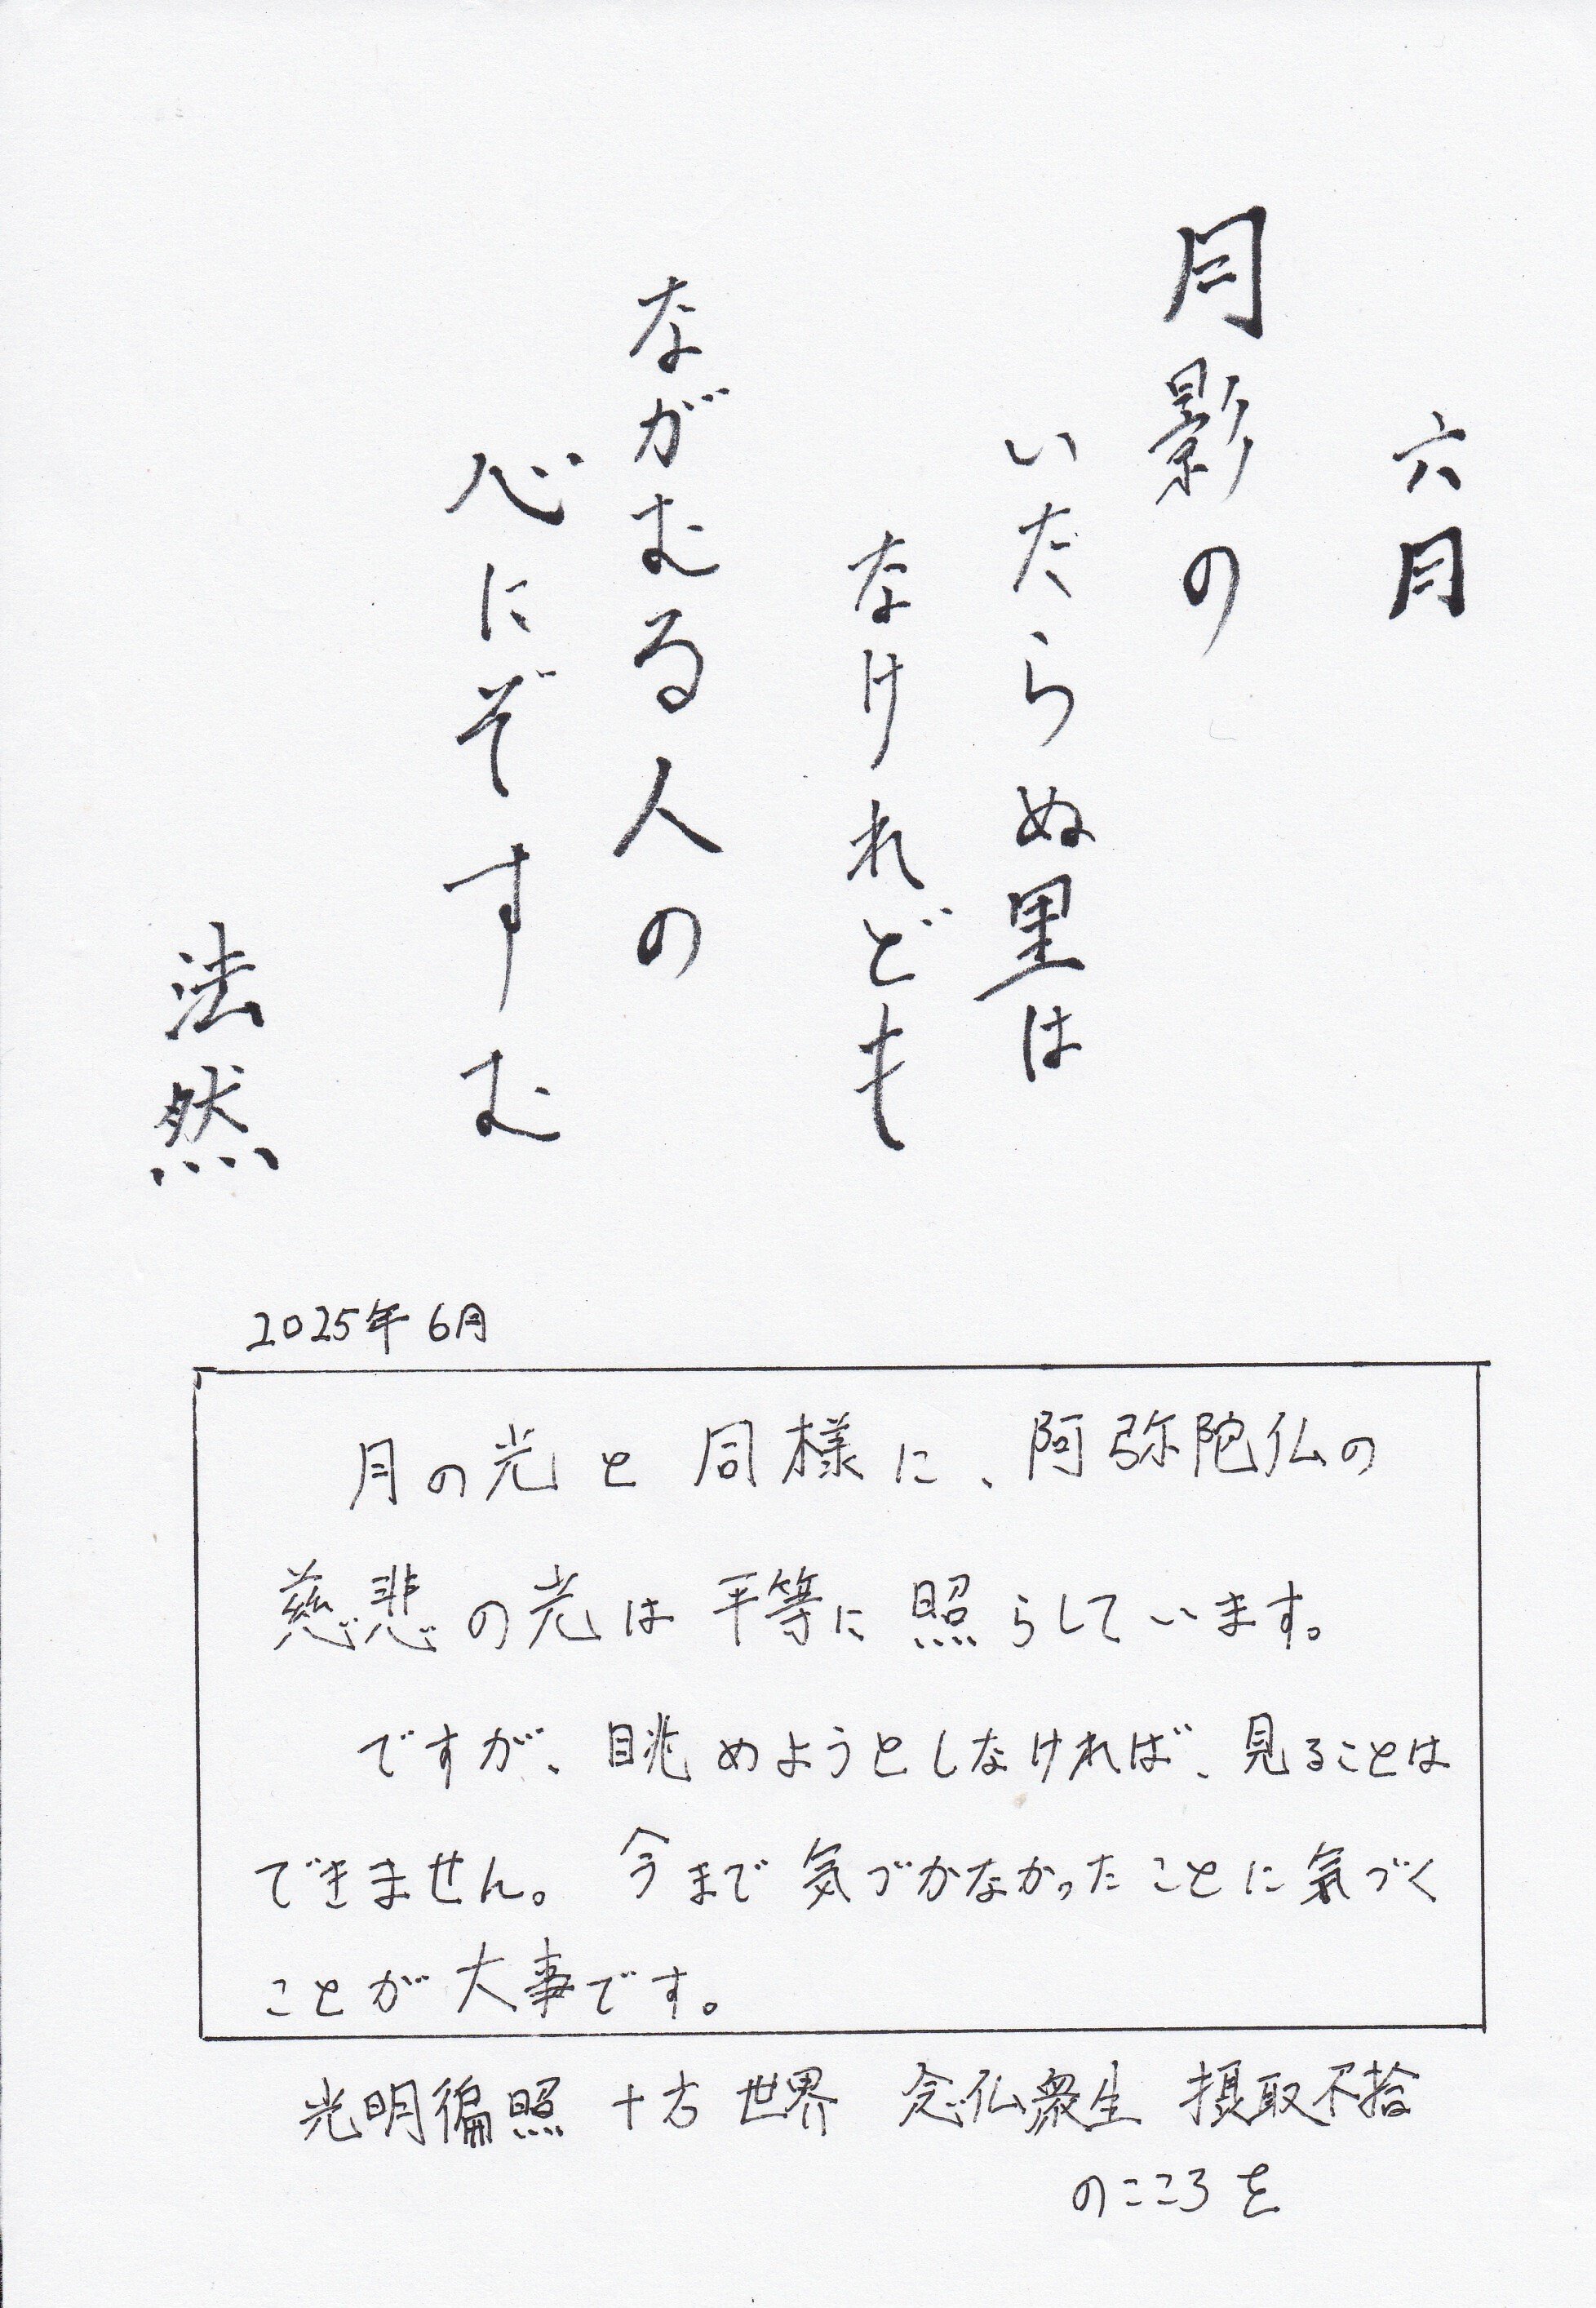 六月
月影の
いたらぬ里は
なけれども
ながむる人の
心にぞすむ
法然
2025年6月
月の光と同様に、阿弥陀仏の
慈悲の光は平等に照らしています。
ですが、眺めようとしなければ、見ることは
できません。今まで気づかなかったことに気づく
ことが大事です。
光明徧照 十方世界 念仏衆生 摂取不捨
のこころを